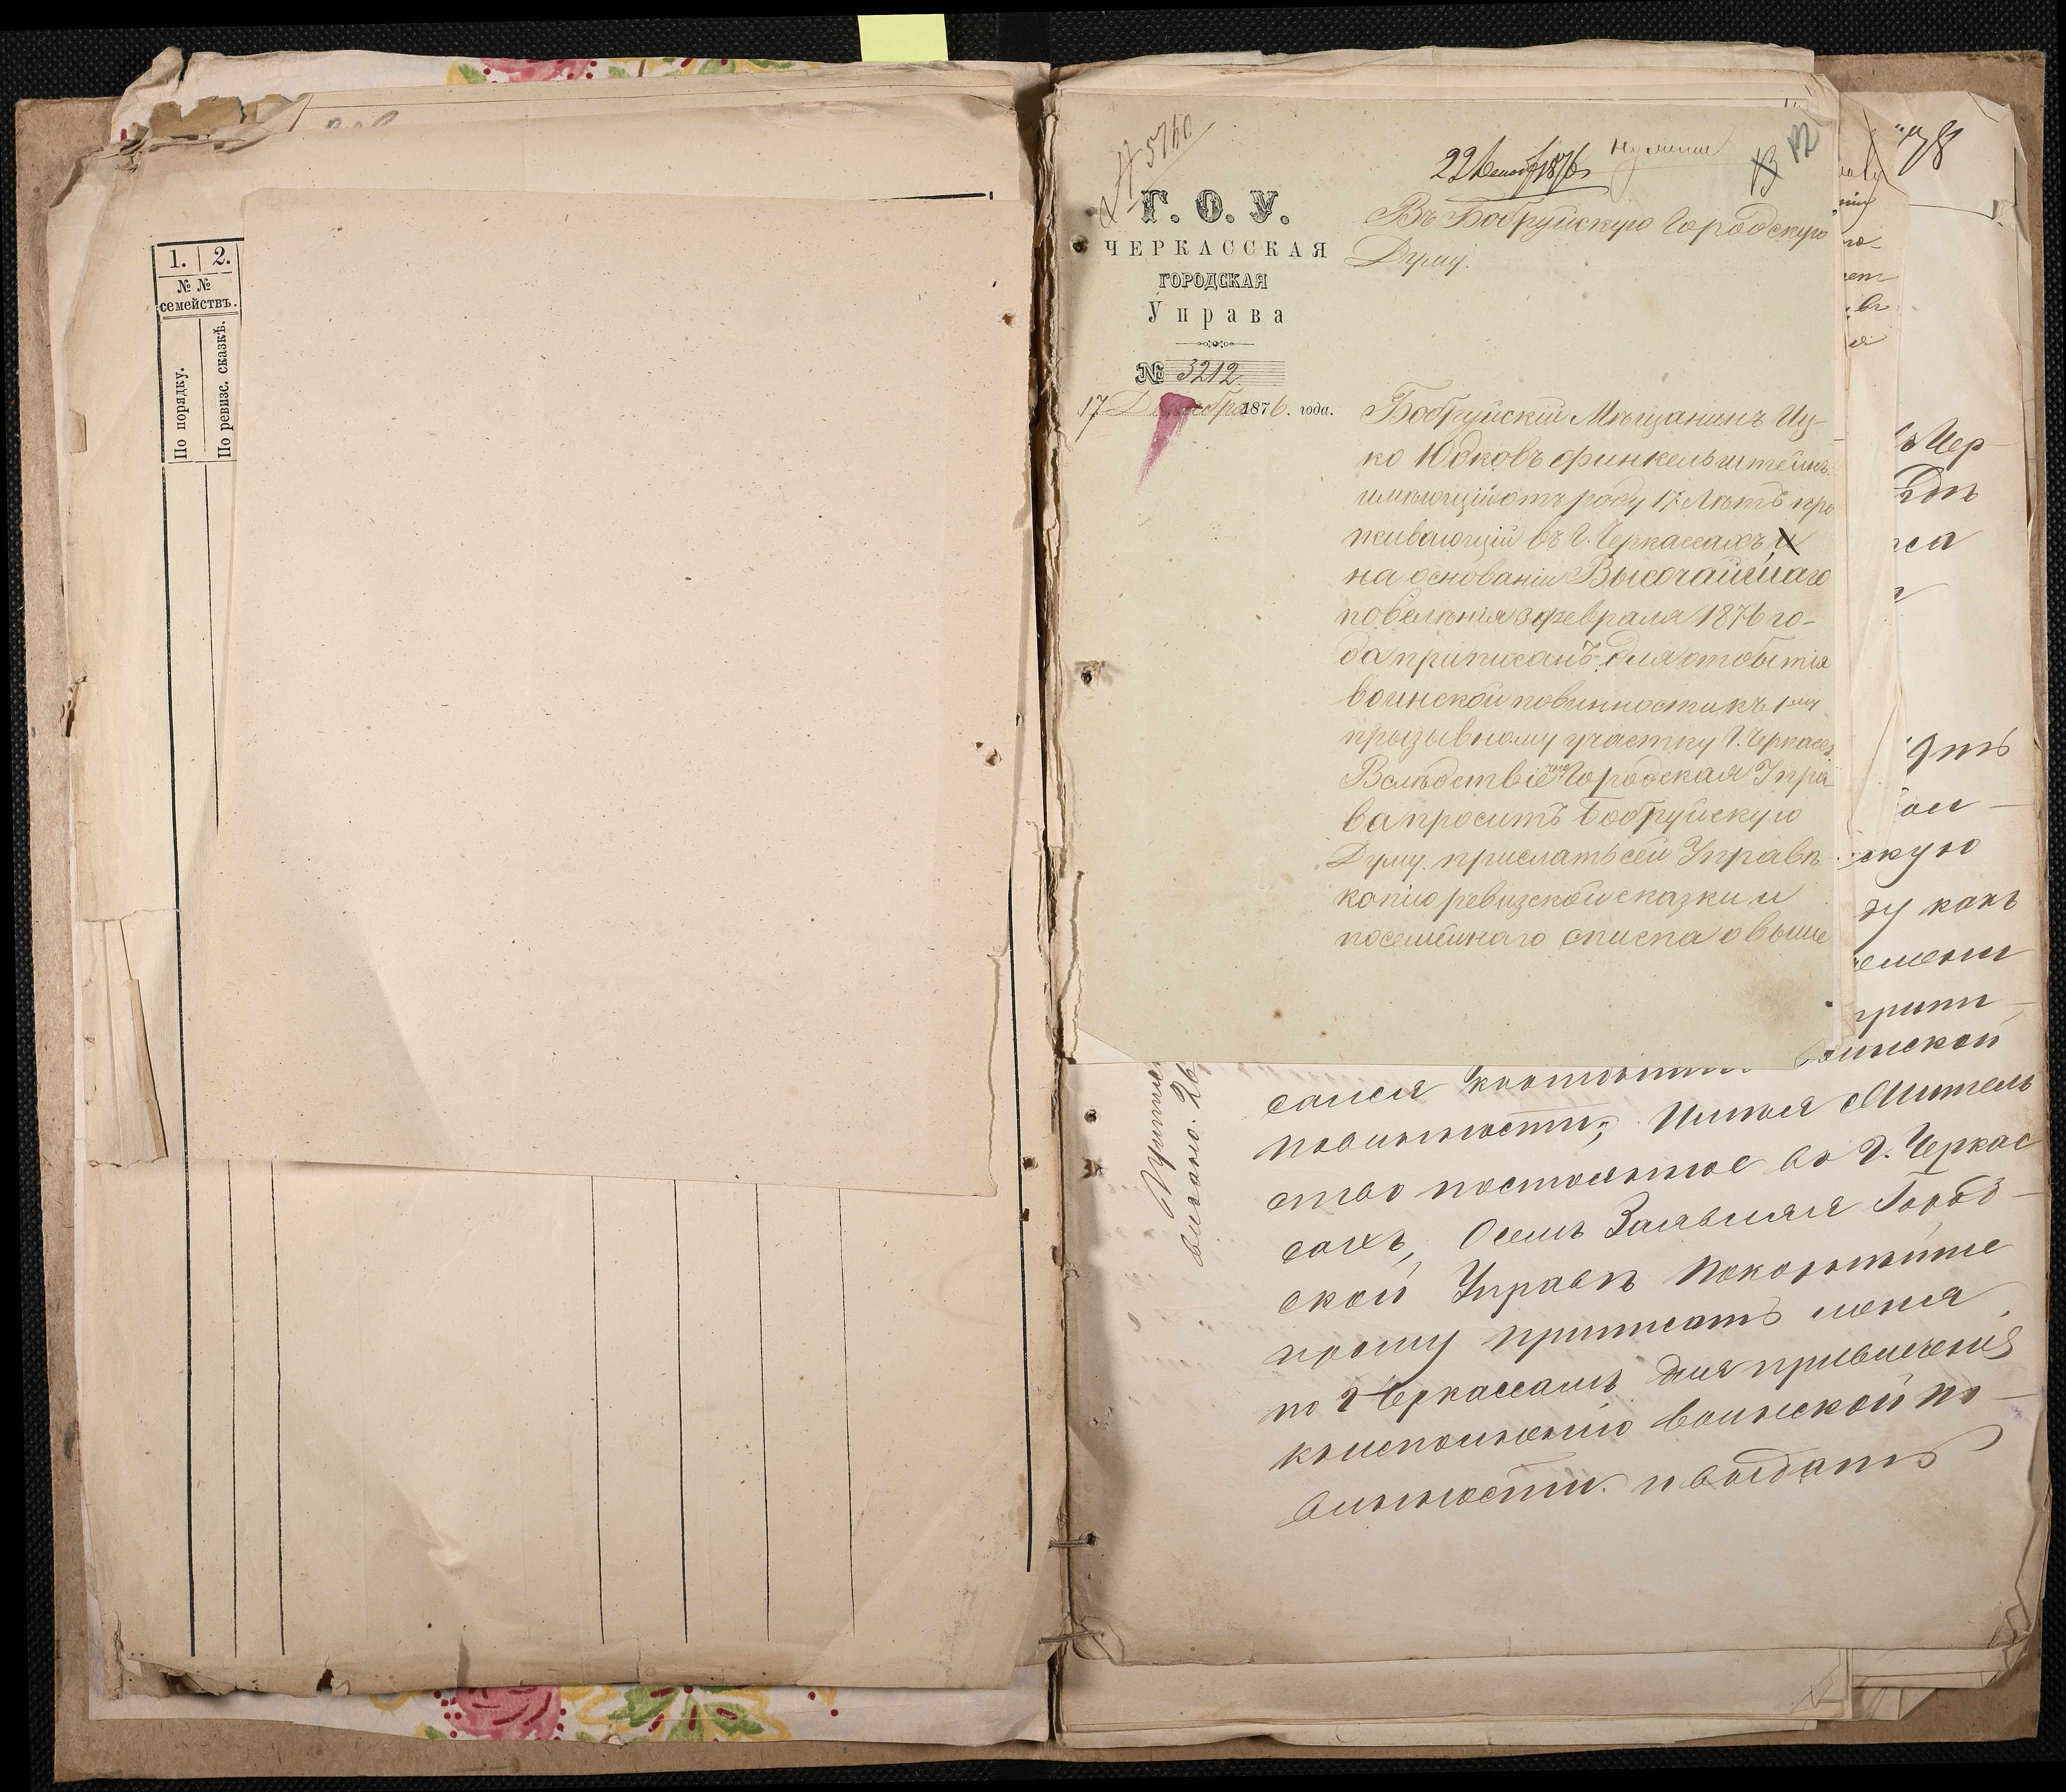 1. 2.
№ №
семействъ.
По порядку.
По ревизс. сказкѣ.
№ 5760
22 Декабр 1876
13
12
Г. О. У.
ЧЕРКАССКАЯ
ГОРОДСКАЯ
Управа
№ 3212.
17 Декабря 1876. года.
Въ Бобруйскую Городскую
Думу.
Бобруйскій Мѣщанинъ Иц-
ко Юдковъ Финкельштейнъ
имѣющій отъ роду 17 Лѣтъ про
живающій въ Г. Черкассахъ, и
на основаніи Высочайшаго
повелѣнія 3 февраля 1876 го-
да приписанъ для отбытія
воинской повинности къ 1му
призывному участку Г. Черкассъ
Вслѣдствіе чего Городская Упра-
ва проситъ Бобруйскую
Думу прислать сей Управѣ
копію ревизской сказки и
посемейнаго списка о выше
78
ъ Чер
скую
ду какъ
воинской
повинности; Имѣя Житель
ство постоянное въ Г. Черкас
сахъ, Симъ Заявляя Город-
ской Управѣ покорнѣйше
прошу приписать меня
по г Черкассамъ для привлеченія
къ исполненію воинской по-
винности и выдать